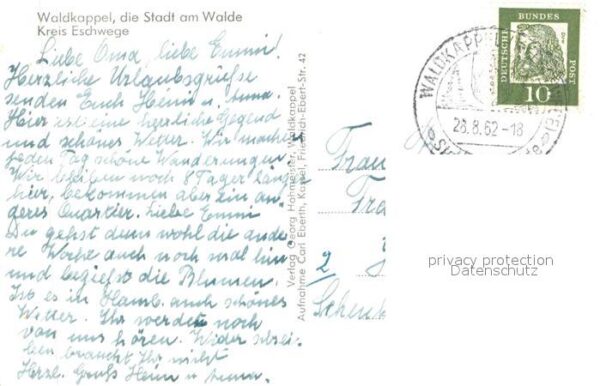 Waldkappel, die Stadt am Walde
Kreis Eschwege
Liebe Oma, liebe Emmi!
Herzliche Urlaubsgrüße
senden Euch Heini u. Anna.
Hier ist eine herrliche Gegend
und schönes Wetter. Wir machen
jeden Tag schöne Wanderungen.
Wir bleiben noch 8 Tage länger
hier, bekommen aber ein an-
deres Quartier. Liebe Emmi
Du gehst dann wohl die ande
re Woche auch noch mal hin
und begießst die Blumen.
Ist es in Hamb. auch schönes
Wetter. Ihr werdet noch
von uns hören. Wieder schrei-
ben braucht Ihr nicht
Herzl. Gruß Heini u. Anna.
Verlag Georg Hofmeister, Waldkappel
Aufnahme Carl Eberth, Kassel, Friedrich-Ebert-Str. 42
DEUTSCHE BUNDESPOST
10
WALDKAPPEL
28.8.62-18
Frau
2
privacy protection
Datenschutz